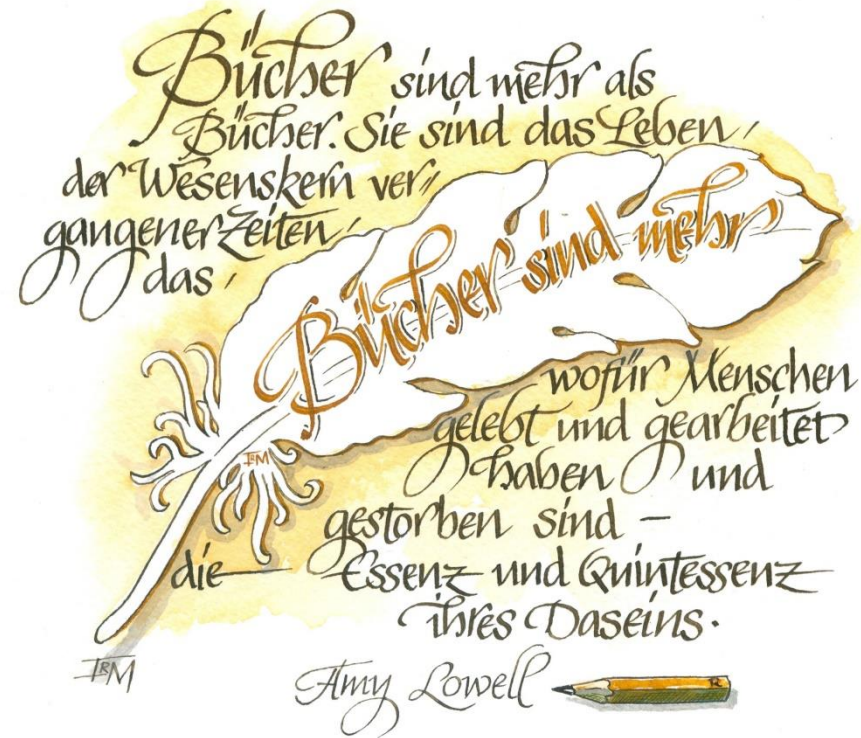 Bücher sind mehr als
Bücher. Sie sind das Leben,
der Wesenskern ver,,
gangener Zeiten,
das,
Bücher sind mehr
wofür Menschen
gelebt und gearbeitet
haben und
gestorben sind –
die Essenz und Quintessenz
ihres Daseins.
IRM
IRM
Amy Lowell